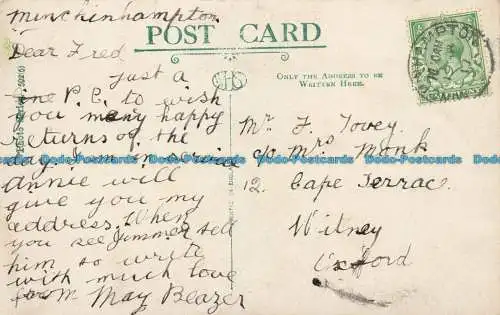 Minchinhampton
Dear Fred
just a
P.C. to wish
you many happy
returns of the
day. I am in service
Annie will
give you my
address. When
you see Jimmer tell
him to write
with much love
from May Beazer
POST CARD
ONLY THE ADDRESS TO BE
WRITTEN HERE.
Mr F. Tovey
c/o Mrs Monk
12. Cape Terrace
Witney
Oxford
Postcards-Collectables